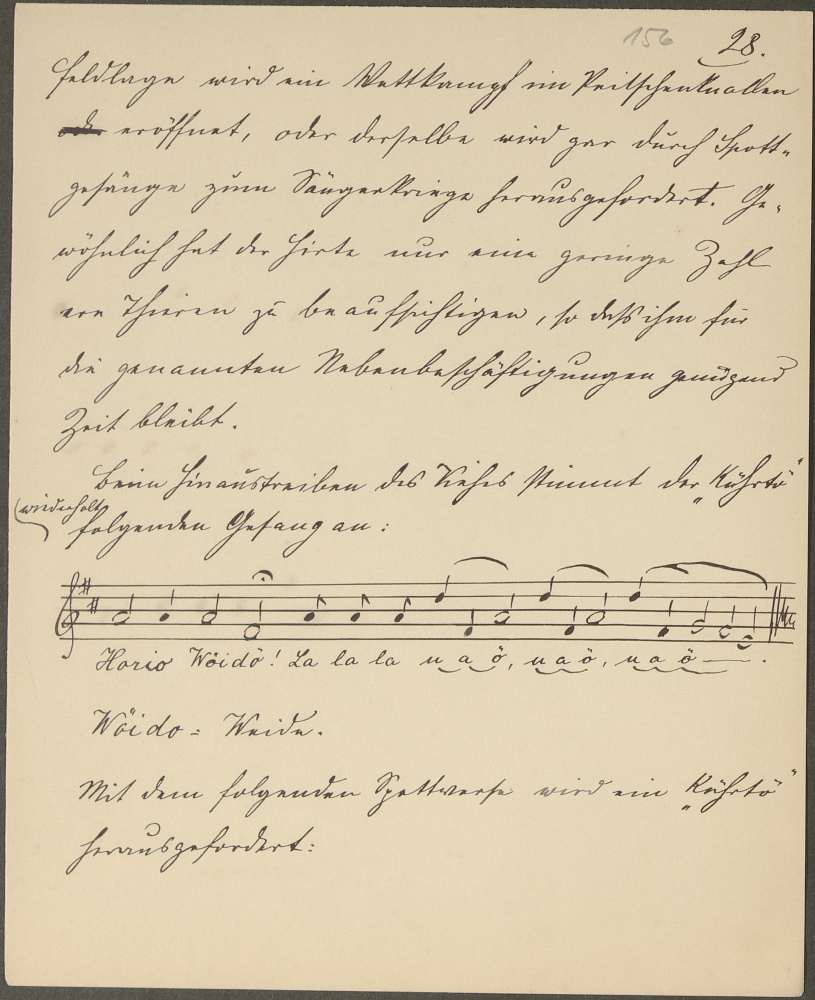 156 28.
Feldlage wird ein Wettkampf im Peitschenknallen
eröffnet, oder derselbe wird gar durch Spott-
gesänge zum Sängerkriege herausgefordert. Ge-
wöhnlich hat der Hirte nur eine geringe Zahl
von Thieren zu beaufsichtigen, so dass ihm für
die genannten Nebenbeschäftigungen genügend
Zeit bleibt.
Beim Hinaustreiben des Viehes stimmt der „Kührtö“
(wiederholt)
folgenden Gesang an:
Horio Wöidö! La la la u a ö, u a ö, u a ö — .
Wöido = Weide.
Mit dem folgenden Spottverse wird ein „Kührtö“
herausgefordert: